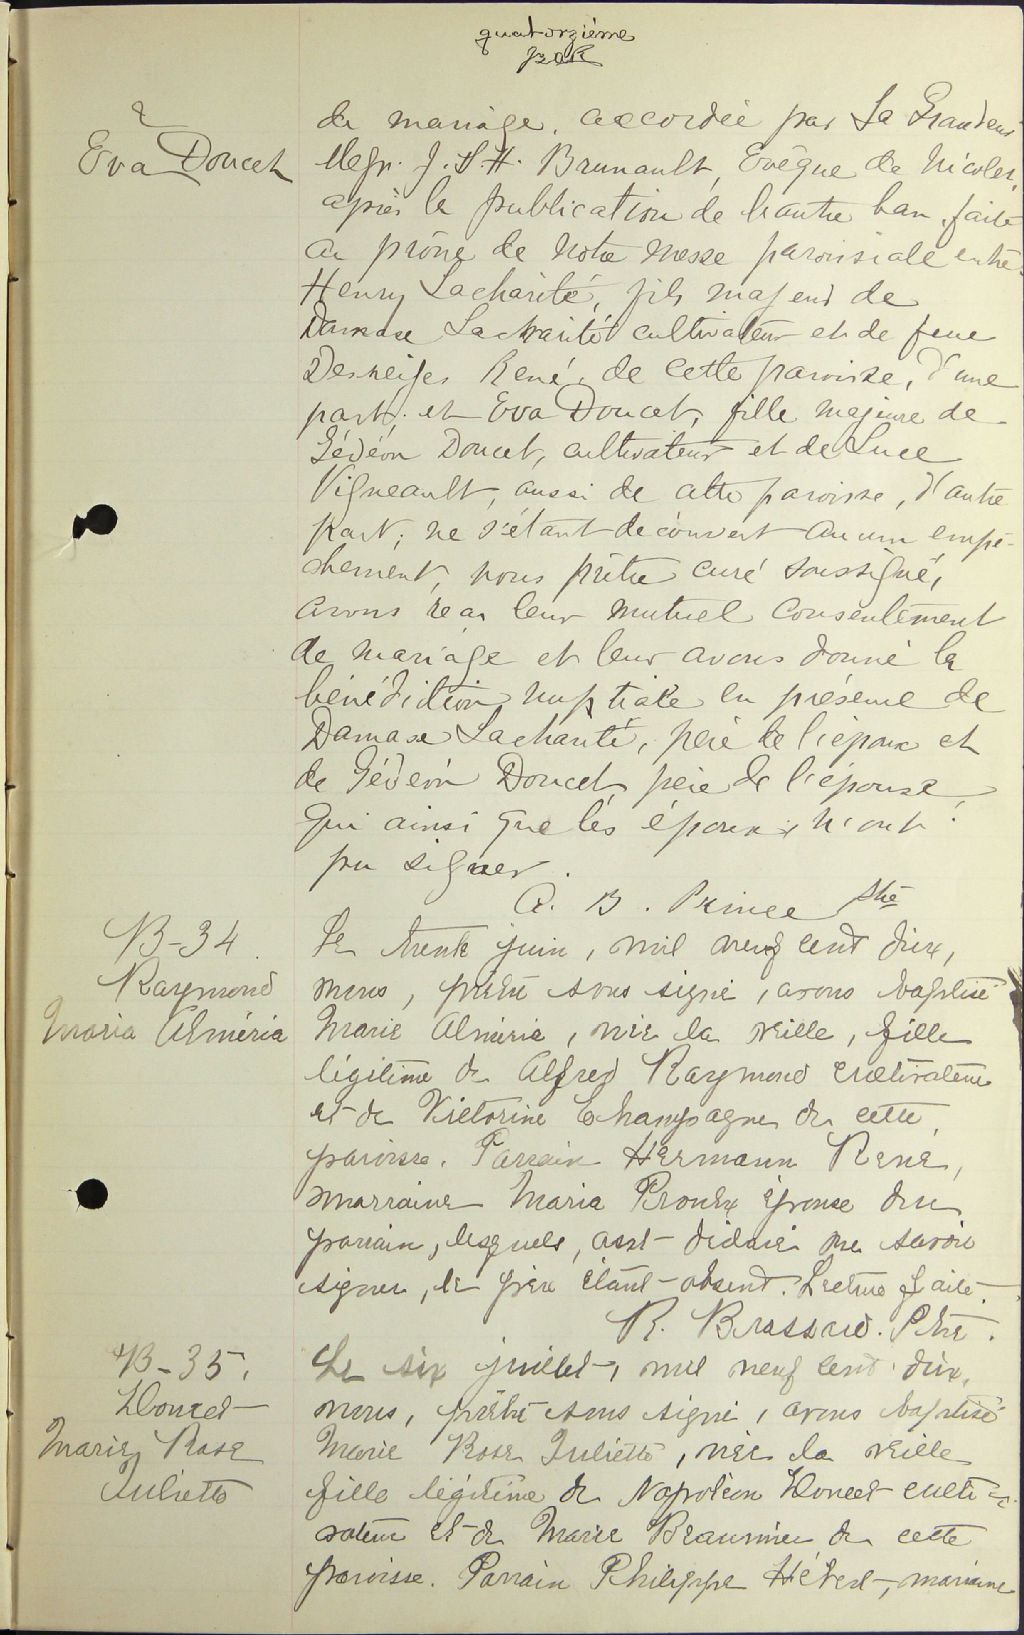 quatorzième
&
Eva Doucet
de mariage, accordée par Sa Grandeur
Mgr. J. S. H. Brunault, Evêque de Nicolet,
après la publication de l'autre ban faite
au prône de notre messe paroissiale entre
Henry Lacharité, fils majeur de
Damase Lacharité cultivateur et de feue
Desneiges René, de cette paroisse, d'une
part; et Eva Doucet, fille majeure de
Gédéon Doucet, cultivateur et de Luce
Vigneault, aussi de cette paroisse, d'autre
part; ne s'étant découvert aucun empê-
chement, nous prêtre curé soussigné,
avons reçu leur mutuel consentement
de mariage et leur avons donné la
bénédiction nuptiale en présence de
Damase Lacharité, père de l'époux et
de Gédéon Doucet, père de l'épouse,
qui ainsi que les époux, n'ont
pu signer.
A. B. Prince Ptre
B-34.
Raymond
Maria Alméria
Le trente juin, mil neuf cent dix,
nous, prêtre sous signé, avons baptisé
Marie Almérie, née la veille, fille
légitime de Alfred Raymond cultivateur
et de Victorine Champagne de cette
paroisse. Parrain Hermann René,
marraine Maria Proulx épouse du
parrain, lesquels, ont déclaré ne savoir
signer, le père étant absent. Lecture faite.
R. Brassard. Ptre.
B-35.
Doucet
Marie Rose
Juliette
Le six juillet, mil neuf cent dix,
nous, prêtre sous signé, avons baptisé
Marie Rose Juliette, née la veille
fille légitime de Napoléon Doucet culti-
vateur et de Marie Beaumier de cette
paroisse. Parrain Philippe Hébert, marraine